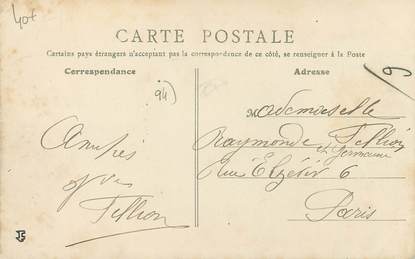 40+
CARTE POSTALE
Certains pays étrangers n'acceptant pas la correspondance de ce côté, se renseigner à la Poste
Correspondance
Adresse
94)
9
Mademoiselle
Raymonde Tellion
et Germaine
Rue Elzévir 6
Paris
Amitiés
Tellion